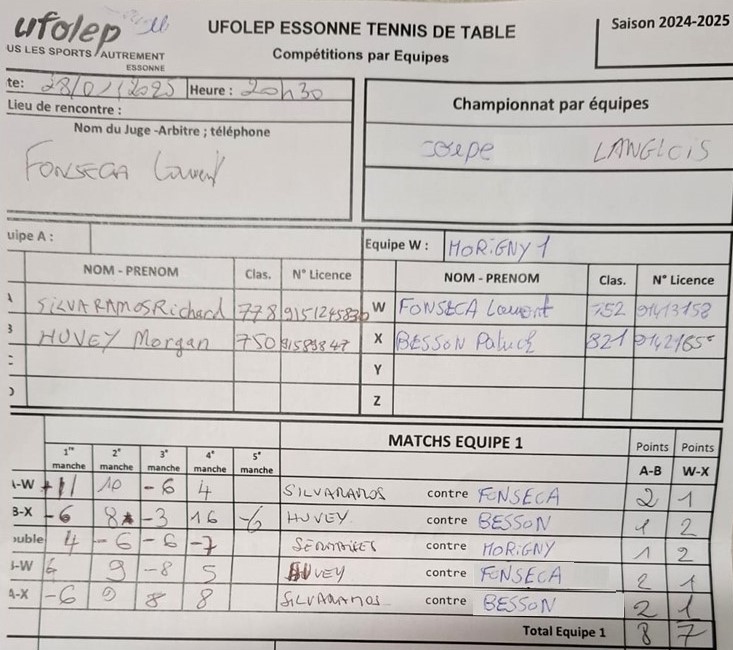 ufolep
UFOLEP ESSONNE TENNIS DE TABLE
Saison 2024-2025
US LES SPORTS AUTREMENT
ESSONNE
Compétitions par Equipes
te: 28/01/2025 Heure : 20h30
Lieu de rencontre :
Nom du Juge -Arbitre ; téléphone
FONSECA Laurent
Championnat par équipes
coupe LANGLOIS
uipe A :
Equipe W : MORIGNY 1
NOM - PRENOM Clas. N° Licence NOM - PRENOM Clas. N° Licence
SILVARAMOS Richard 778 W FONSECA Laurent 752 91413158
HUVEY Morgan 750 91589847 X BESSON Patrick 821
Y
Z
MATCHS EQUIPE 1
1re manche 2e manche 3e manche 4e manche 5e manche Points A-B Points W-X
-W 11 10 -6 4 SILVARAMOS contre FONSECA 2 1
B-X -6 8 -3 16 -6 HUVEY contre BESSON 1 2
ouble 4 -6 -6 -7 contre MORIGNY 1 2
-W 6 9 -8 5 HUVEY contre FONSECA 2 1
A-X -6 9 8 8 SILVARAMOS contre BESSON 2 1
Total Equipe 1 8 7